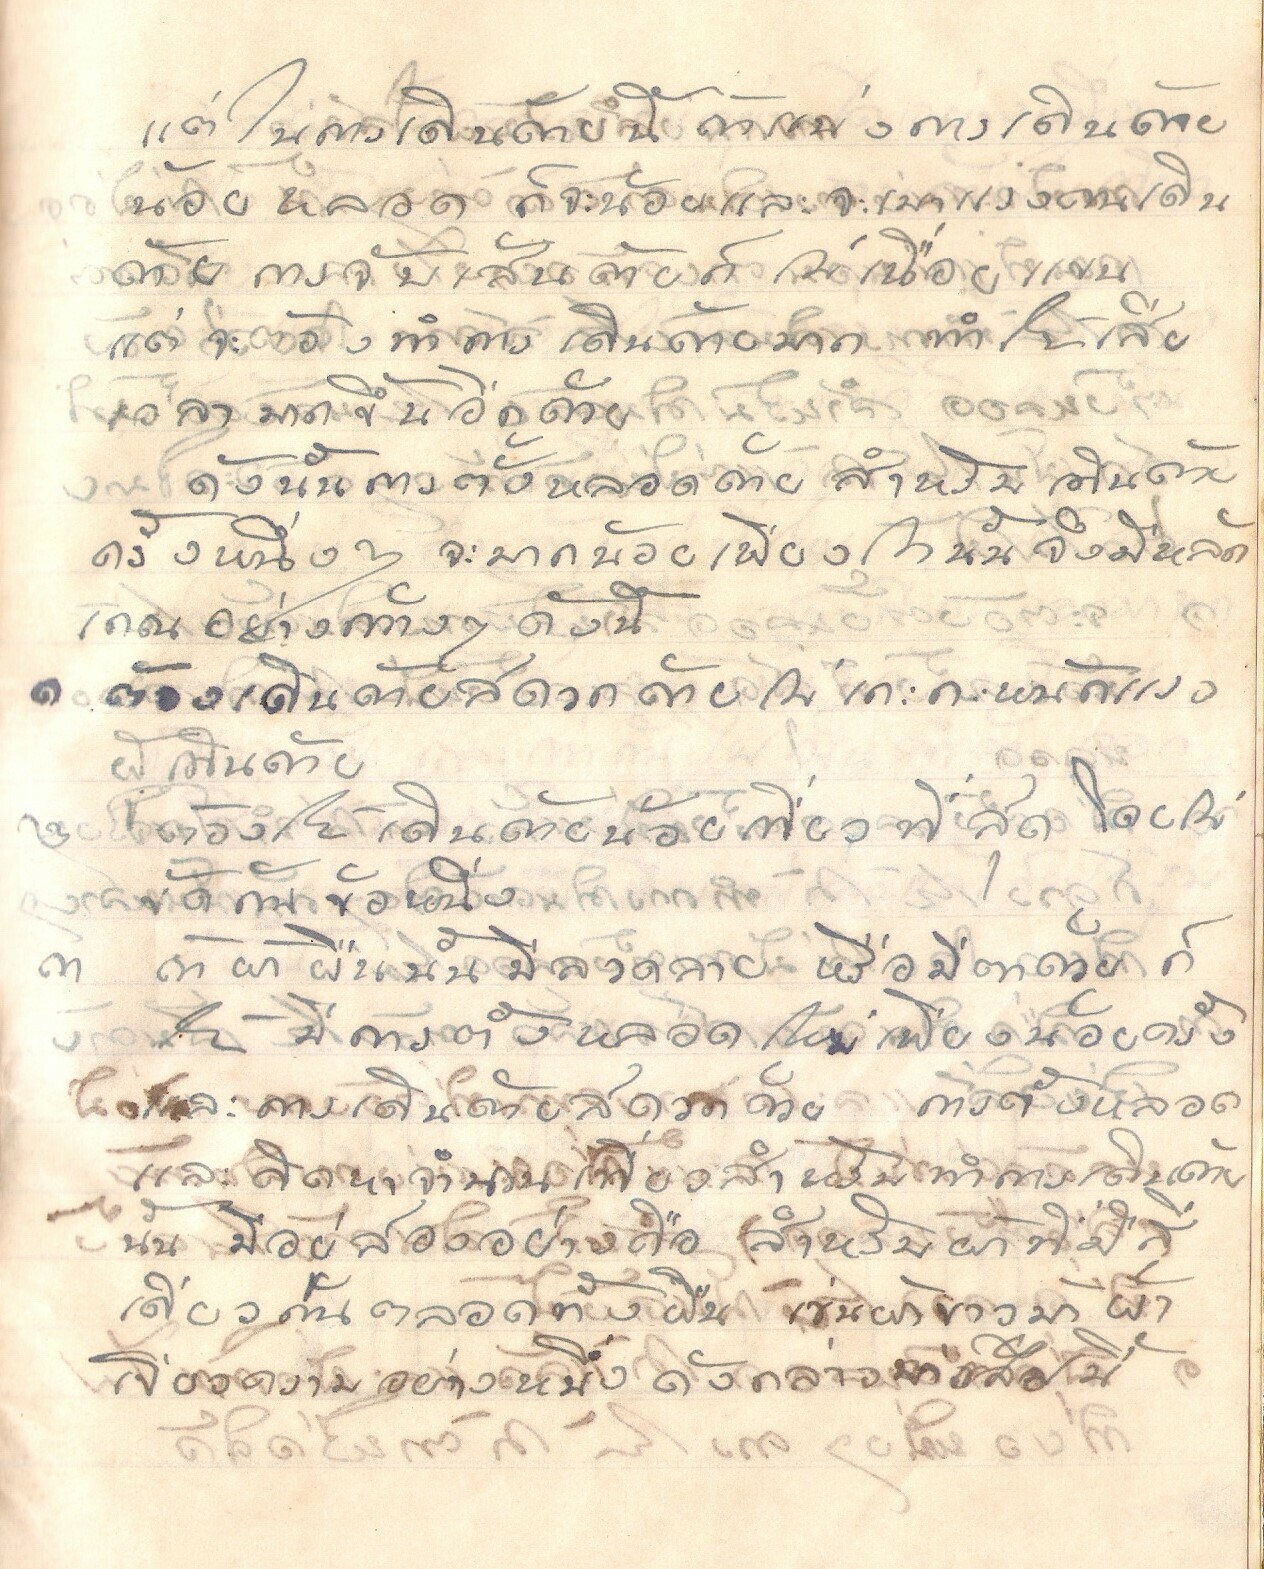 แต่ในการเดินด้ายนี้ ถ้าแบ่งการเดินด้าย
น้อยหลอด ก็จะน้อยและจะเบาแรงคนเดิน
ด้าย การจับเส้นด้ายก็ไม่เหนื่อยแขน
แต่จะต้องทำการเดินด้ายมาก ทำให้เสีย
เวลามากขึ้นอีกด้วย
ดังนั้นการตั้งหลอดด้าย สำหรับเดินด้าย
ครั้งหนึ่งๆ จะมากน้อยเพียงไรนั้นจึงมีหลัก
เกณอย่างกว้างๆ ดังนี้
๑ ต้องเดินด้ายสดวกด้ายไม่เกะกะหนักแรง
ผู้เดินด้าย
๒ ต้องให้เดินด้ายน้อยเที่ยวที่สุด โดยไม่
ขัดกับข้อหนึ่ง
๓ ถ้าผ้าผืนนั้นมีลวดลาย หรือมีตาด้วย ก็
ให้มีการตั้งหลอดใหม่เพียงน้อยครั้ง
และการเดินด้ายสดวกด้วย การตั้งหลอด
และคิดหาจำนวนเที่ยวสำหรับทำการเดินด้าย
นั้น มีอยู่สองอย่างคือ สำหรับผ้าที่มีสี
เดียวกันตลอดทั้งผืน เช่นผ้าขาวม้า ผ้า
อย่างหนึ่ง ดังกล่าว